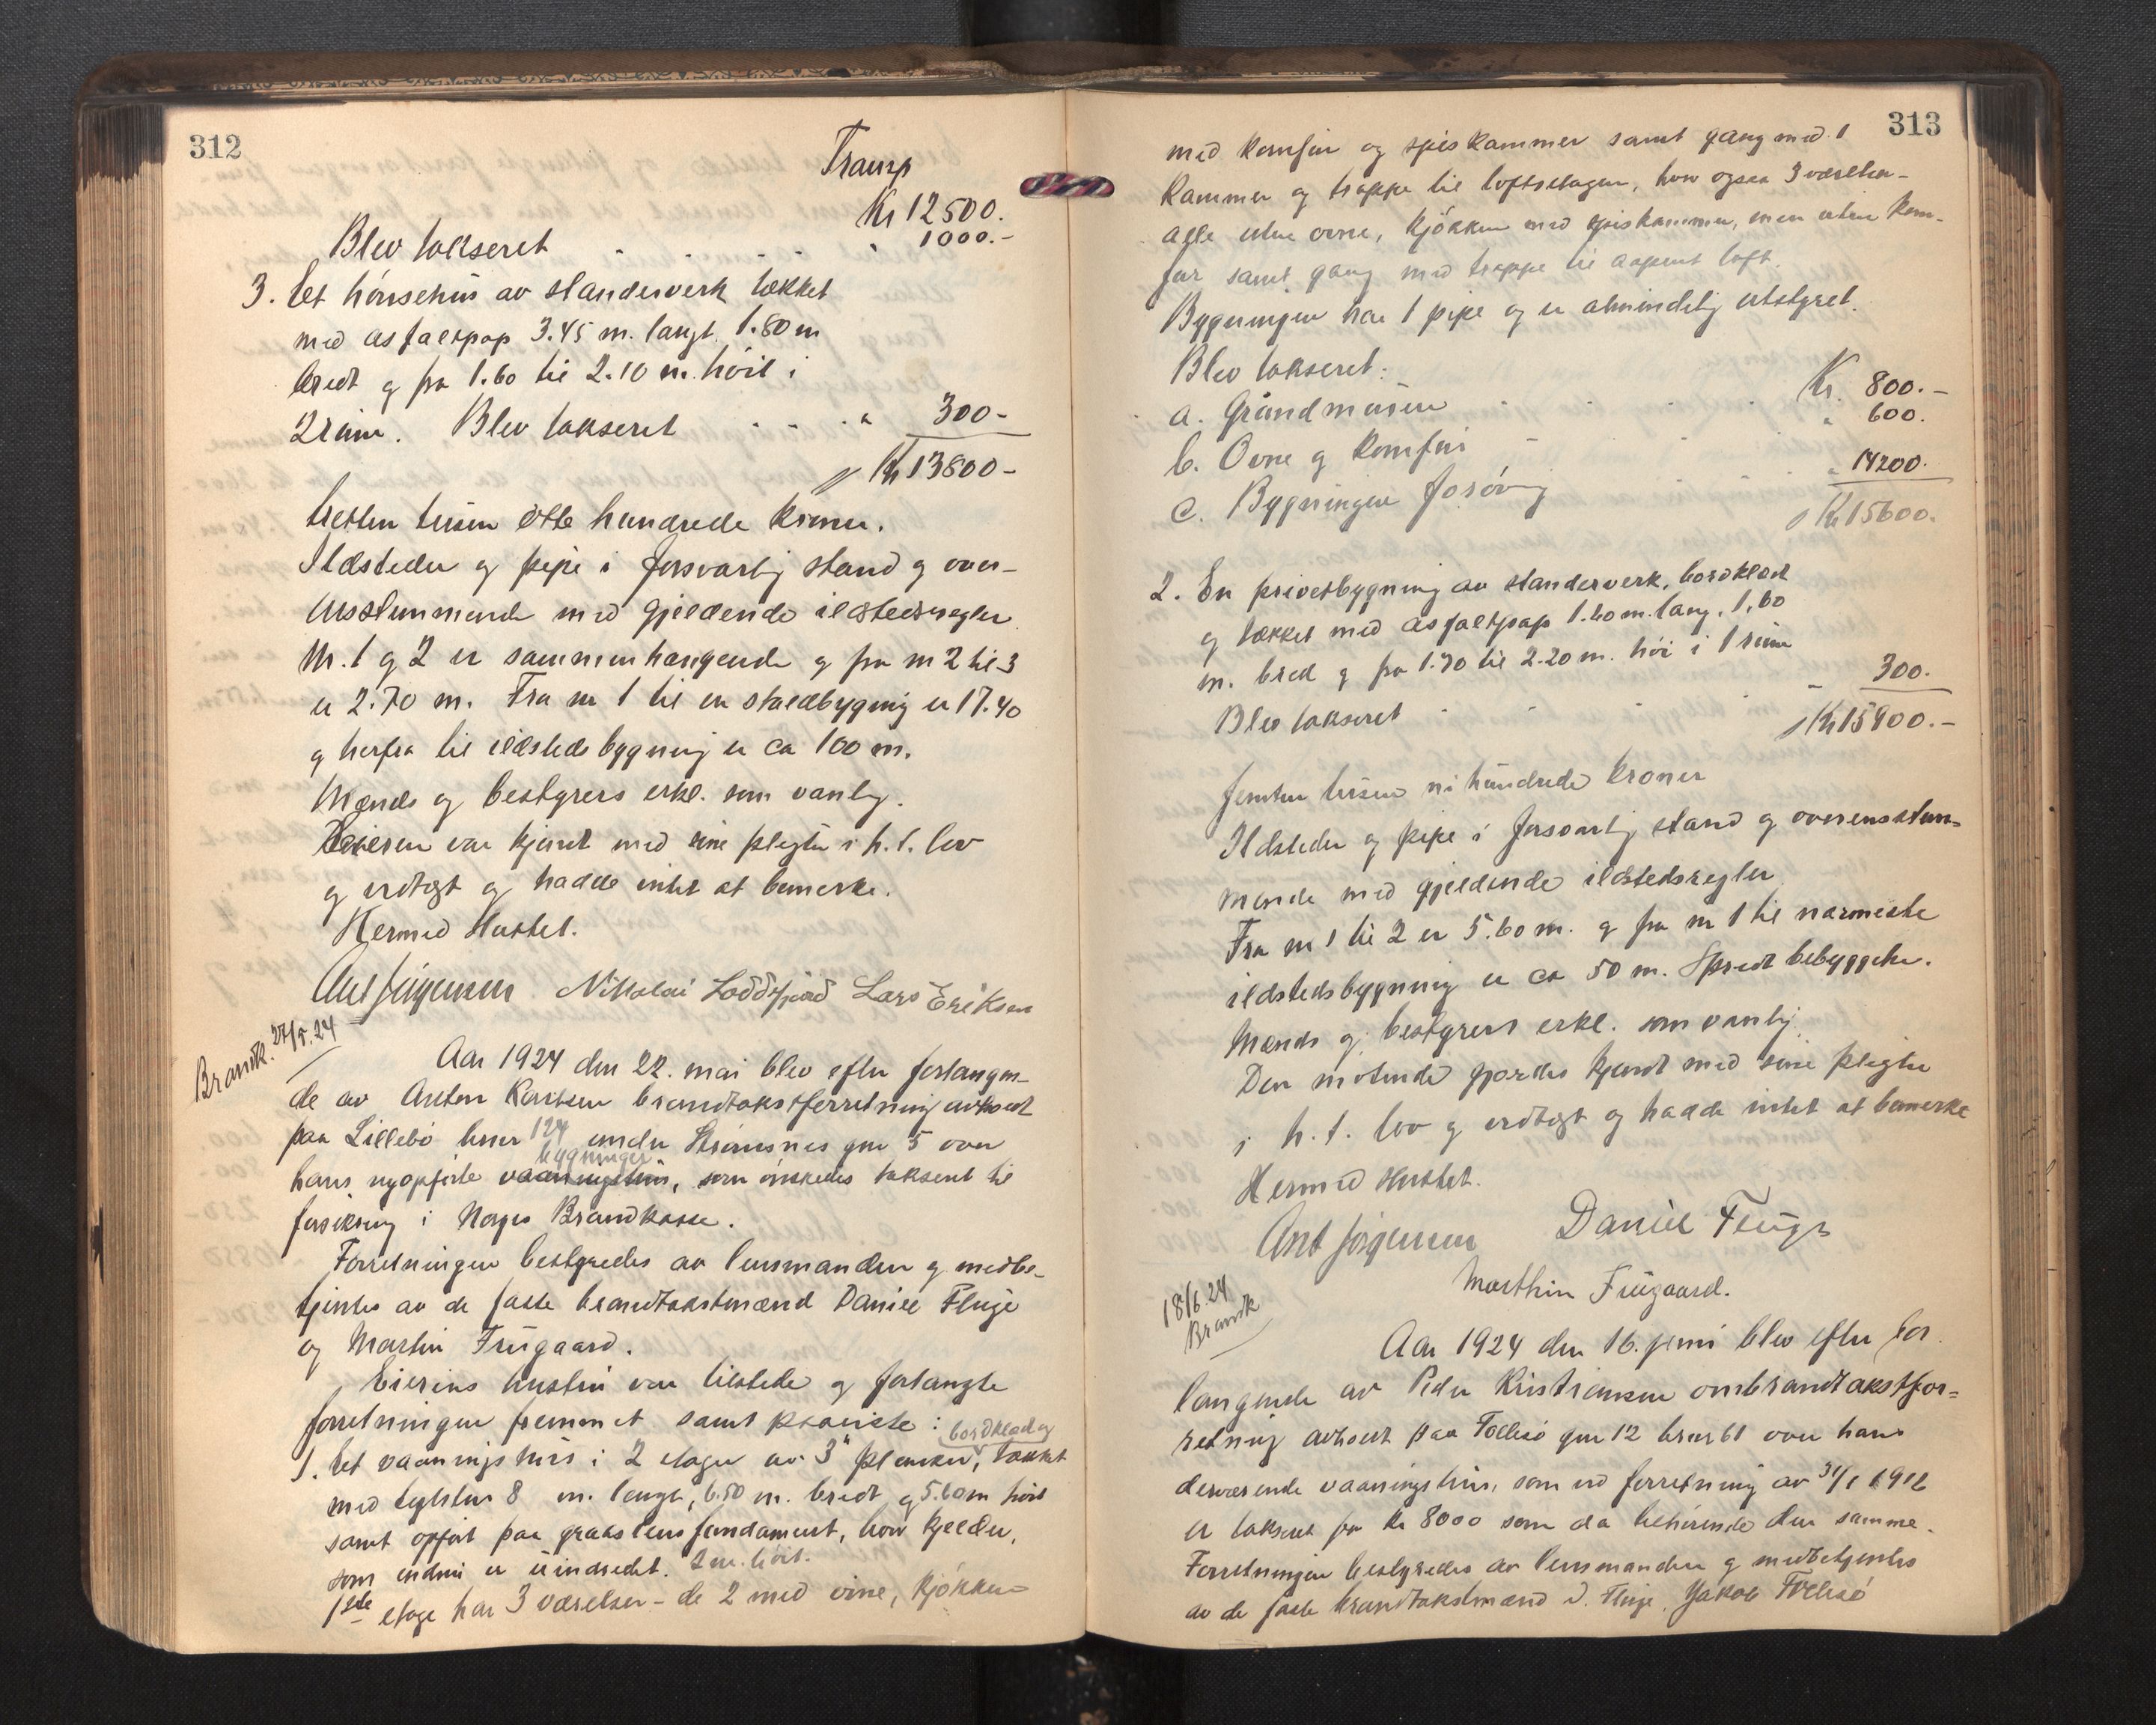 312
Transp
Kr 12500.
Blev takseret . . . . " 1000.-
3. Et hönsehus av standerverk tækket
med asfaltpap 3.45 m. langt. 1.80 m
bredt og fra 1.60 til 2.10 m. höit i
2 rum. Blev takseret . . . " 300-
Kr 13800-
tretten tusen otte hundrede kroner.
Ildsteder og pipe i forsvarlig stand og over-
ensstemmende med gjeldende ildstedsregler
Nr. 1 og 2 er sammenhængende og fra nr 2 til 3
er 2.70 m. Fra nr 1 til en staldbygning er 17.40
og herfra til ildstedsbygning er ca 100 m.
Mænds og bestyrers erkl. som vanlig.
Eieren var kjendt med sine pligter i h. t. lov
og vedtægt og hadde intet at bemerke.
Hermed sluttet.
Ant Jörgensen Nikolai Loddefjord Lars Eriksen
Brandk. 27/5.24
Aar 1924 den 22. mai blev efter forlangen-
de av Anton Karlsen brandtakstforretning avholdt
paa Lillebö bnr 124 under Strömsnes gnr 5 over
bygninger
hans nyopförte vaaningshus, som önskedes takseret til
forsikring i Norges Brandkasse.
Forretningen bestyredes av lensmanden og medbe-
tjentes av de faste brandtakstmænd Daniel Fluge
og Martin Frugaard.
Eierens hustru var tilstede og forlangte
forretningen fremmet samt paaviste:
bordklædd og
1. Et vaaningshus i 2 etager av 3" planker, tækket
med teglsten 8 m. langt, 6.50 m. bredt og 5.60 m höit
samt opfört paa graastensfundament, hvor kjelder,
som endnu er uindredet. 2 m. höit.
1ste etage har 3 værelser - de 2 med ovne, kjökken
313
med komfur og spiskammer samt gang med 1
kammer og trappe til loftsetagen, hvor ogsaa 3 værelser-
alle uten ovne, kjökken med spiskammer, men uten kom-
fur samt gang med trappe til aapent loft.
Bygningen har 1 pipe og er almindelig utstyret.
Blev takseret:
a. Grundmuren . . . . Kr. 800.-
b. Ovne og komfur - . . . " 600.
c. Bygningen forövrig . . . " 14200.
Kr 15600.
2. En privetbygning av standerverk, bordklædt
og tækket med asfaltpap 1.60 m. lang, 1,60
m. bred og fra 1.70 til 2.20 m. höi i 1 rum
Blev takseret . . . . - 300.
Kr 15900.-
femten tusen ni hundrede kroner
Ildsteder og pipe i forsvarlig stand og overensstem-
mende med gjeldende ildstedsregler
Fra nr 1 til 2 er 5.60 m. og fra nr 1 til nærmeste
ildstedsbygning er ca 50 m. Spredt bebyggelse.
Mænds og bestyrers erkl. som vanlig
Den mötende gjordes kjendt med sine pligter
i h. t. lov og vedtægt og hadde intet at bemerke
Hermed sluttet.
Ant Jörgensen Daniel Fluge
Marthin Frugaard.
18/6.24
Brandk
Aar 1924 den 16. juni blev efter for
langende av Peder Kristiansen ombrandtakstfor-
retning avholdt paa Follesö gnr 12 brnr 61 over hans
derværende vaaningshus, som ved forretning av 31/1 1912
er takseret for kr 8000 som da tilhörende den samme.
Forretningen bestyredes av lensmanden og medbetjentes
av de faste brandtakstmænd D. Fluge, Jakob Follesö